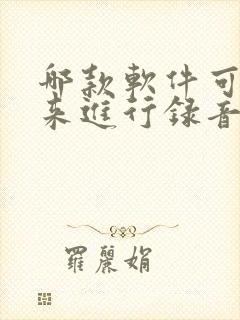 哪款軟件可
来進行録音
羅麗娟